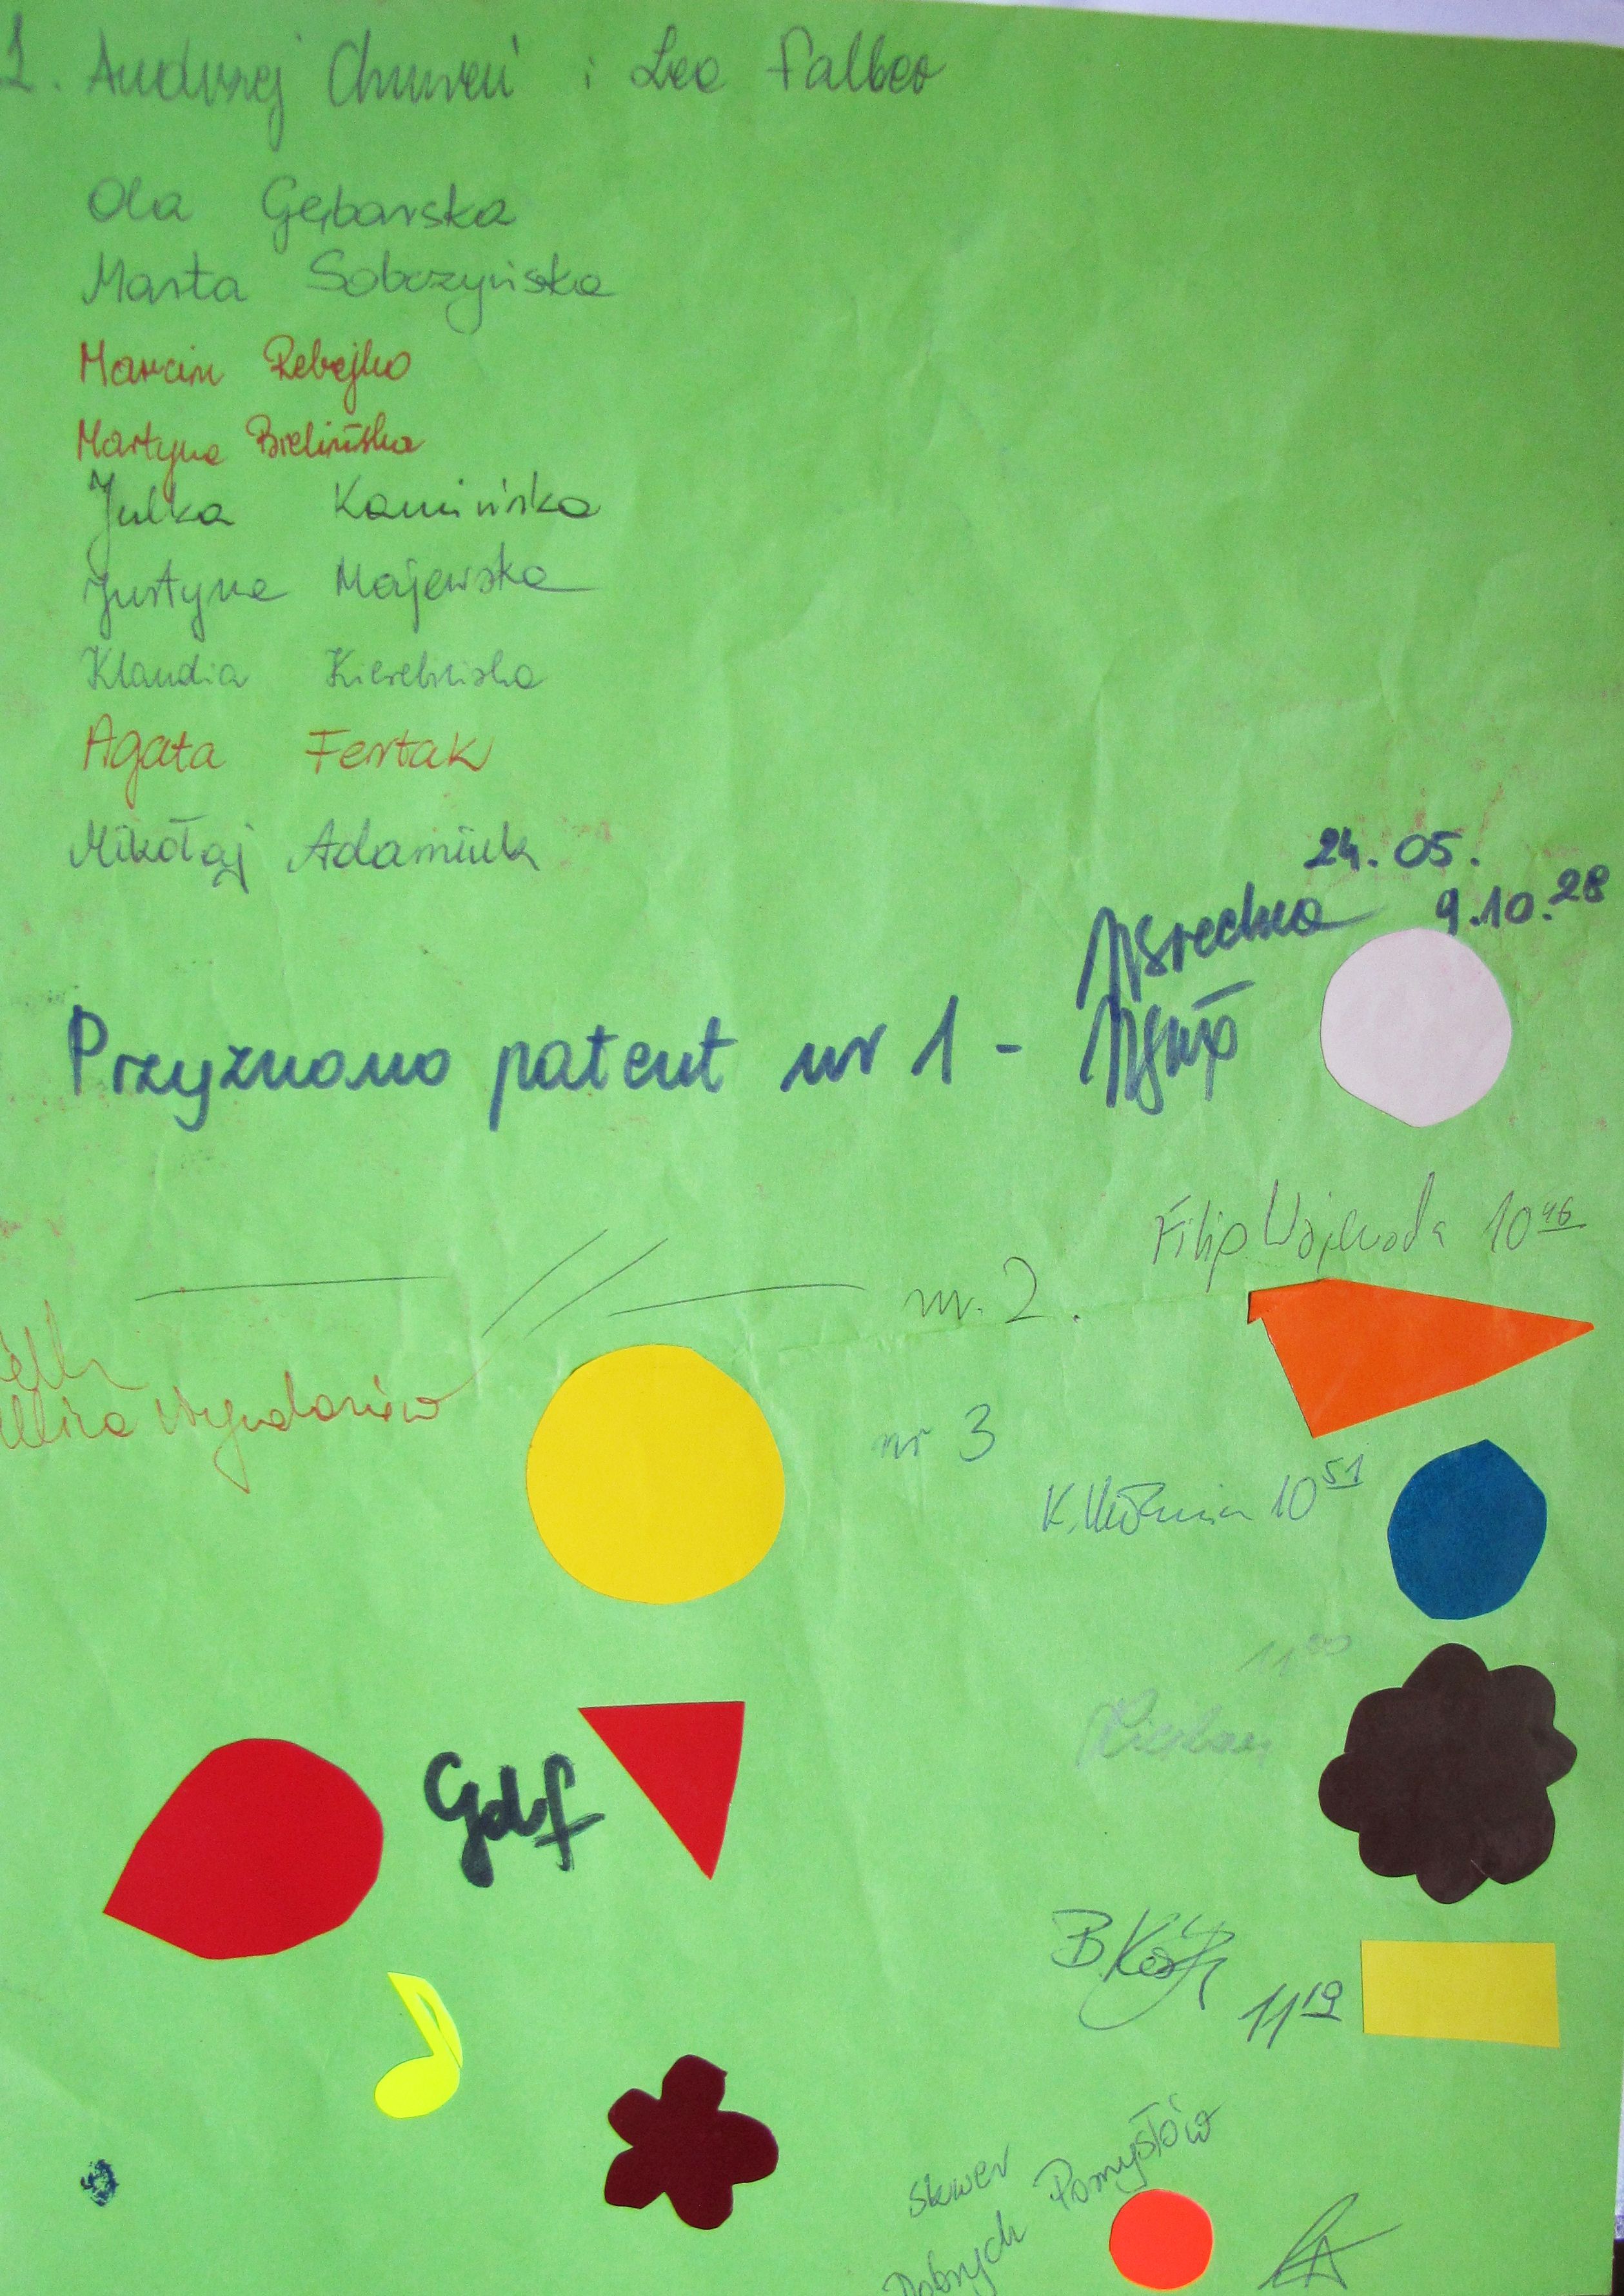 1. Andrzej i Leo Falber
Ola Gębarska
Marta Sobczyńska
Marcin Rebejko
Martyna Bielińska
Julka Kamińska
Justyna Majewska
Klaudia
Agata Fertak
Mikołaj Adamiuk
24.05.
9.10.28
Przyznano patent nr 1 -
Filip 10 46
nr. 2.
nr 3
K. 10 51
11 00
Golf
B. 11 19
Skwer
Dobrych Pomysłów